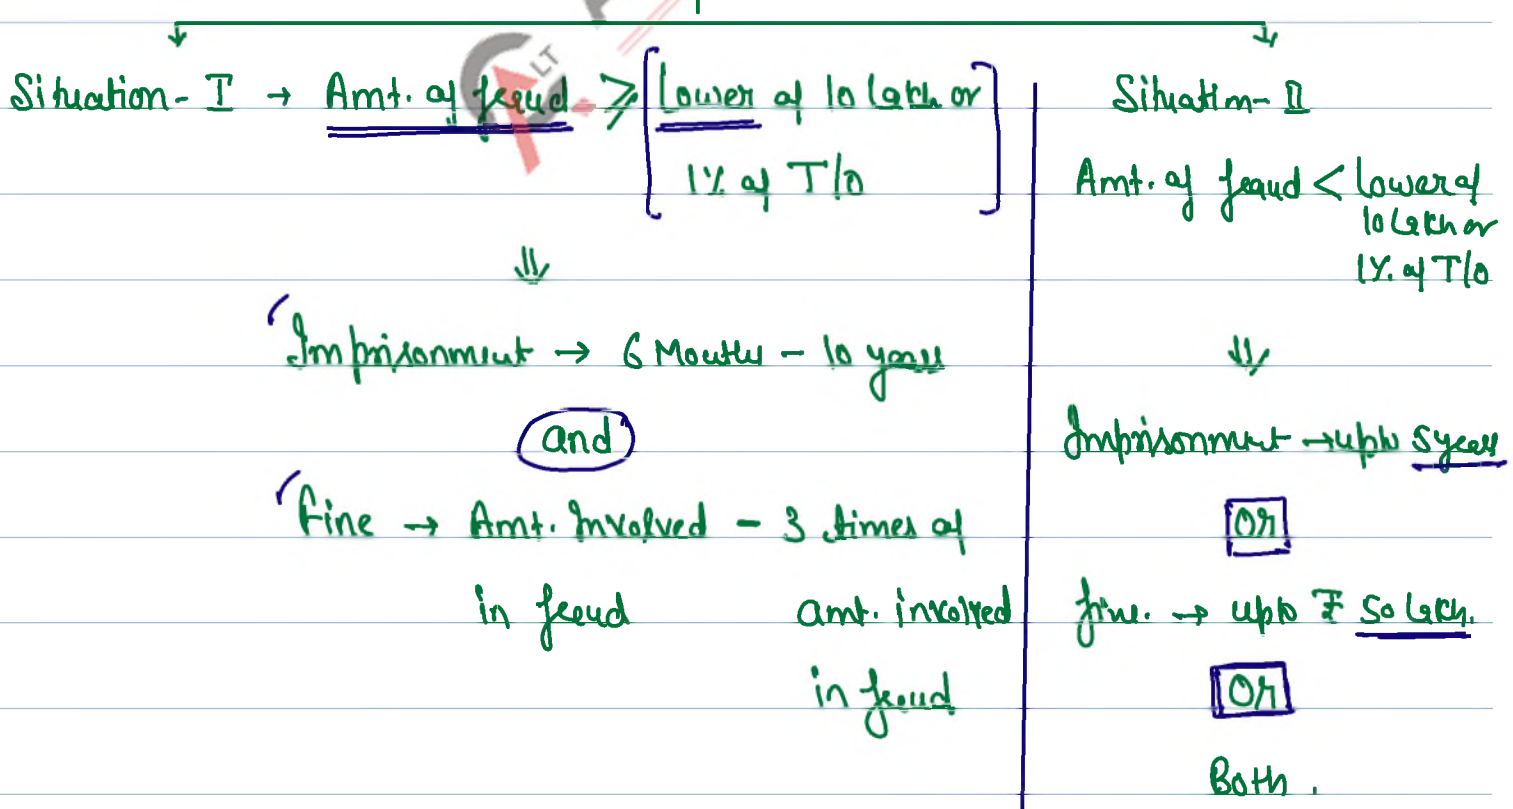 Situation - I → Amt. of fraud ≥ [Lower of 10 lakh or
1% of T/O]
⇓
Imprisonment → 6 Months - 10 years
and
Fine → Amt. Involved - 3 times of
in fraud amt. involved
in fraud
Situation - II
Amt. of fraud < lower of
10 lakh or
1% of T/O
⇓
Imprisonment → upto 5 years
or
fine. → upto ₹ 50 lakh.
or
Both.
LT